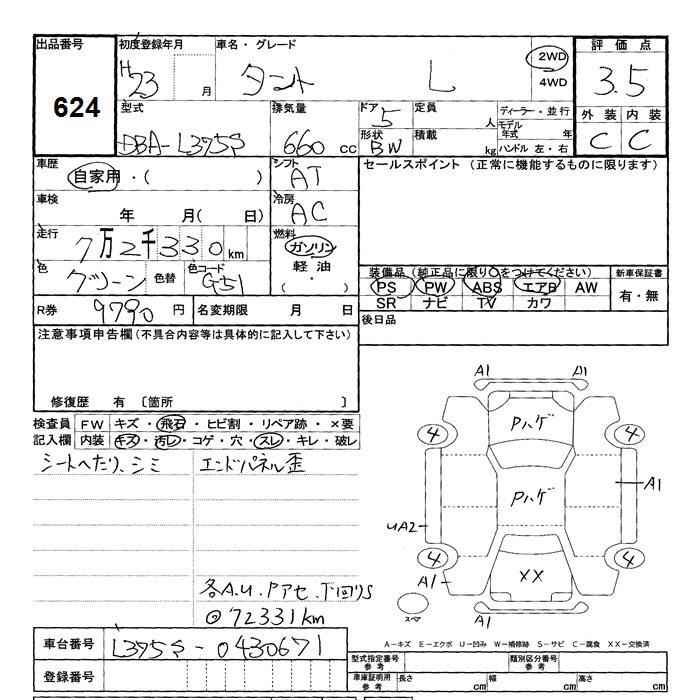 出品番号 初度登録年月 車名・グレード 評価点
624 H23 月 タント L 2WD 4WD 3.5
型式 排気量 ドア 定員 ディーラー・並行 外装 内装
DBA-L375S 660 cc 5 人 モデル年式 年 C C
形状 積載 ハンドル 左・右
BW kg
車歴 シフト セールスポイント (正常に機能するものに限ります)
自家用・( ) AT
車検 年 月( 日) 冷房 AC
走行 7万2千330km 燃料 ガソリン
軽油
( ・ )
色 グリーン 色替 色コード G51
装備品 (純正品に限り○をつけてください) 新車保証書
PS PW ABS エアB AW 有・無
SR ナビ TV カワ
R券 9790 円 名変期限 月 日 後日品
注意事項申告欄(不具合内容等は具体的に記入して下さい)
修復歴 有 〔箇所 〕
検査員 FW キズ・飛石・ヒビ割・リペア跡・×要
記入欄 内装 キズ・汚レ・コゲ・穴・スレ・キレ・破レ
シートへたり、シミ エンドパネル歪
A1 A1
Pハゲ
4 4
Pハゲ
A1
UA2
4 4
XX
A1
スペア
A1
各A.U.Pアセ.下回りS
◎72331km
A-キズ E-エクボ U-凹み W-補修跡 S-サビ C-腐食 XX-交換済
車台番号 L375S-0430671
型式指定番号 参考 類別区分番号 参考
登録番号 車庫証明用 参考 長さ cm 幅 cm 高さ cm